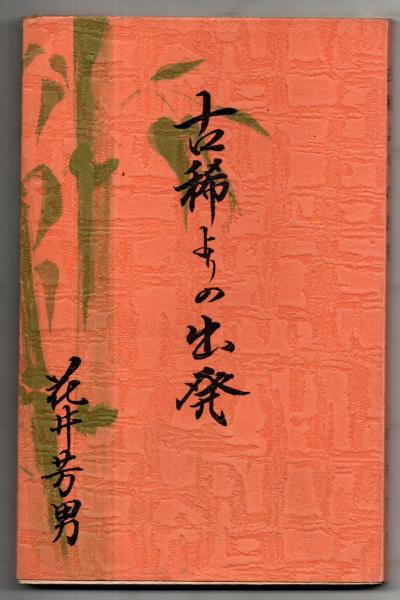 古稀よりの出発
花井芳男